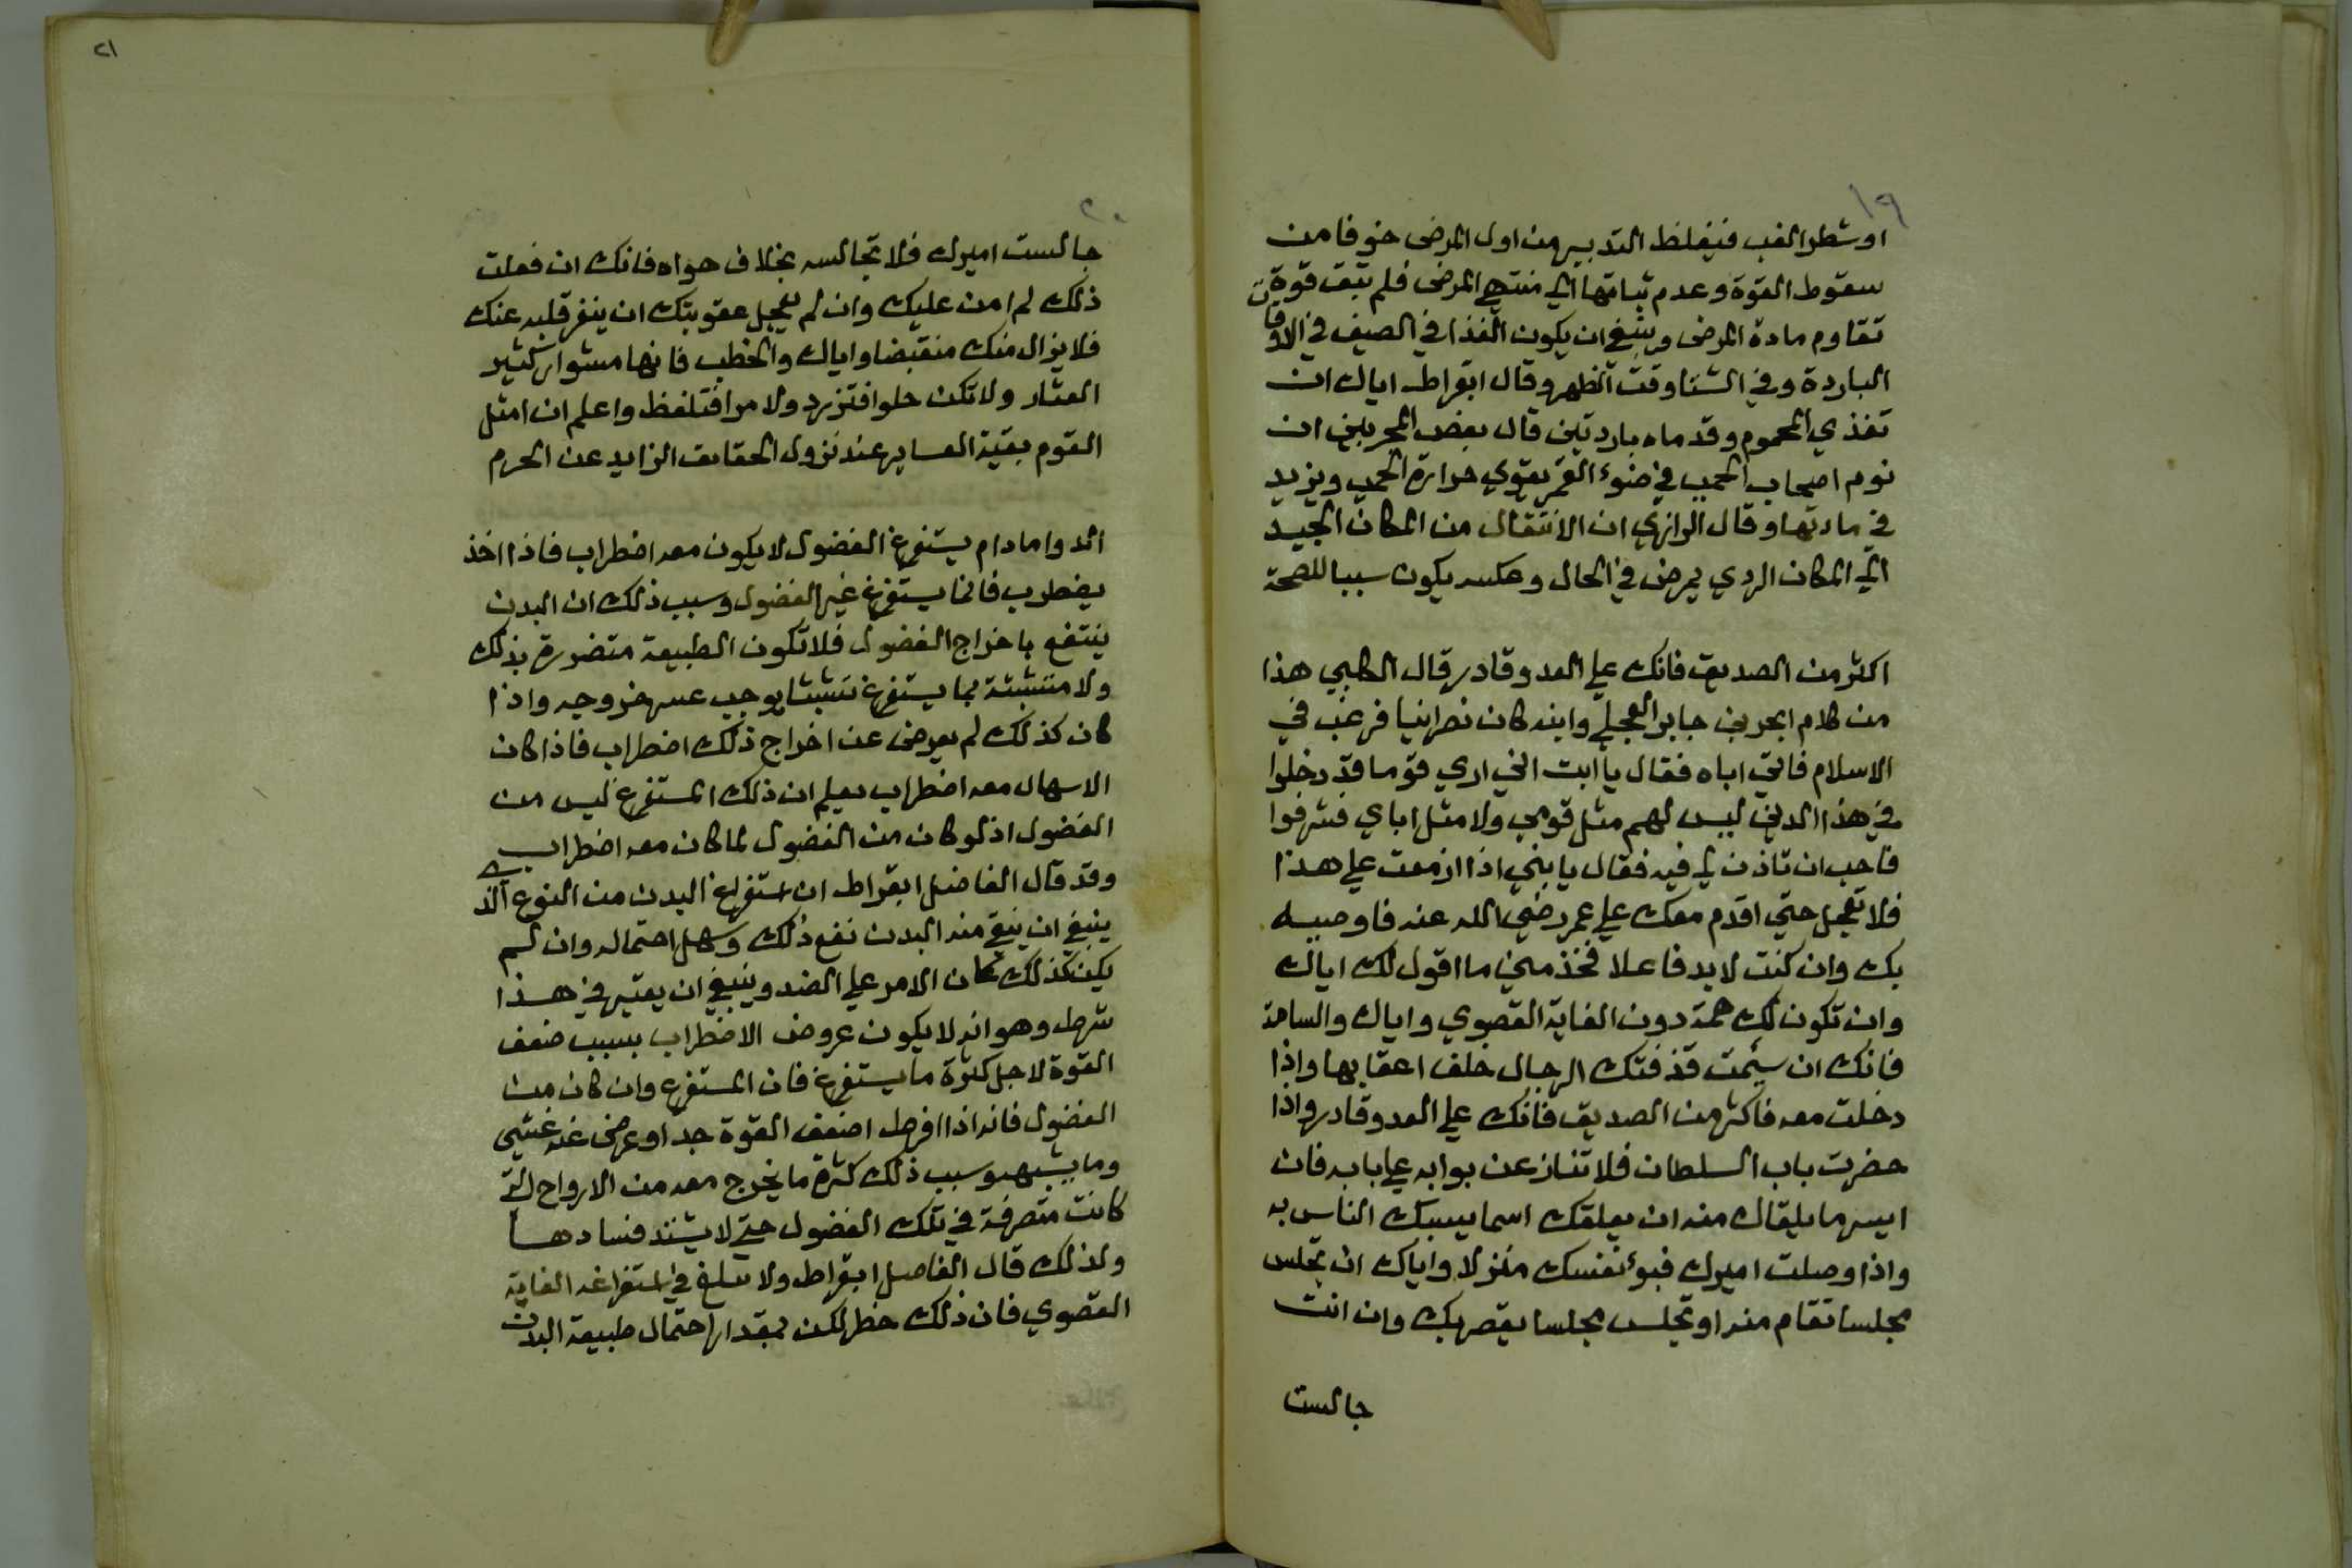 ١٩
او شطر الغب فيغلظ التدبير من اول المرض خوفا من
سقوط القوة وعدم ثباتها الي منتهي المرض فلم تبق قوة
تقاوم مادة المرض وينبغي ان يكون الغذا في الصيف في الاوقات
الباردة وفي الشتا وقت الظهر وقال ابقراط اياك ان
تغذي المحموم وقدماه باردتين قال بعض المجربين ان
نوم اصحاب الحمي في ضوء القمر يقوي حرارة الحمي ويزيد
في مادتها وقال الرازي ان الانتقال من المكان الجيد
الي المكان الردي يمرض في الحال وعكسه يكون سببا للصحة
اكثر من الصديق فانك علي العدو قادر قال الكلبي هذا
من كلام ابجر بن جابر العجلي وابنه كان نصرانيا فرغب في
الاسلام فاتي اباه فقال يا ابت اني اري قوما قد دخلوا
في هذا الدين ليس لهم مثل قومي ولا مثل اباي فشرفوا
فاحب ان تاذن لي فيه فقال يا بني اذا ازمعت علي هذا
فلا تعجل حتي اقدم معك علي عمر رضي الله عنه فاوصيه
بك وان كنت لا بد فاعلا فخذ مني ما اقول لك اياك
وان تكون لك همة دون الغاية القصوي واياك والسامة
فانك ان سئمت قذفتك الرجال خلف اعقابها واذا
دخلت معه فاكثر من الصديق فانك علي العدو قادر واذا
حضرت باب السلطان فلا تنازعن بوابه علي بابه فان
ايسر ما يلقاك منه ان يعلقك اسما يسبك الناس به
واذا وصلت اميرك فبوئ نفسك منزلا واياك ان تجلس
مجلسا تقام منه او تجلس مجلسا يقصر بك وان انت
جالست
٢٠
٢١
جالست اميرك فلا تجالسه بخلاف هواه فانك ان فعلت
ذلك لم امن عليك وان لم يعجل عقوبتك ان ينفر قلبه عنك
فلا يزال منك منقبضا واياك والخطب فانها مشوار كثير
العثار ولا تكن حلوا فتزرد ولا مرا فتلفظ واعلم ان امثل
القوم بقية الصابر عند نزول الحقايق الزايد عن الحرم
الدوا مادام يستفرغ الفضول لا يكون معه اضطراب فاذا اخذ
يضطرب فانما يستفرغ غير الفضول وسبب ذلك ان البدن
ينتفع باخراج الفضول فلا تكون الطبيعة متضررة بذلك
ولا متشبثة بما يستفرغ تشبثا يوجب عسر خروجه واذا
كان كذلك لم يعرض عن اخراج ذلك اضطراب فاذا كان
الاسهال معه اضطراب يعلم ان ذلك المستفرغ ليس من
الفضول اذ لو كان من الفضول لما كان معه اضطراب
وقد قال الفاضل ابقراط ان استفراغ البدن من النوع الذي
ينبغي ان ينقي منه البدن نفع ذلك وسهل احتماله وان لم
يكن كذلك كان الامر علي الضد وينبغي ان يعتبر في هذا
شرط وهو انه لا يكون عروض الاضطراب بسبب ضعف
القوة لاجل كثرة ما يستفرغ فان المستفرغ وان كان من
الفضول فانه اذا افرط اضعف القوة جدا وعرض عنه غشي
وما يشبهه وسبب ذلك كثرة ما يخرج معه من الارواح التي
كانت متصرفة في تلك الفضول حتي لا يشتد فسادها
ولذلك قال الفاضل ابقراط ولا تبلغ في استفراغه الغاية
القصوي فان ذلك خطر لكن بمقدار احتمال طبيعة البدن